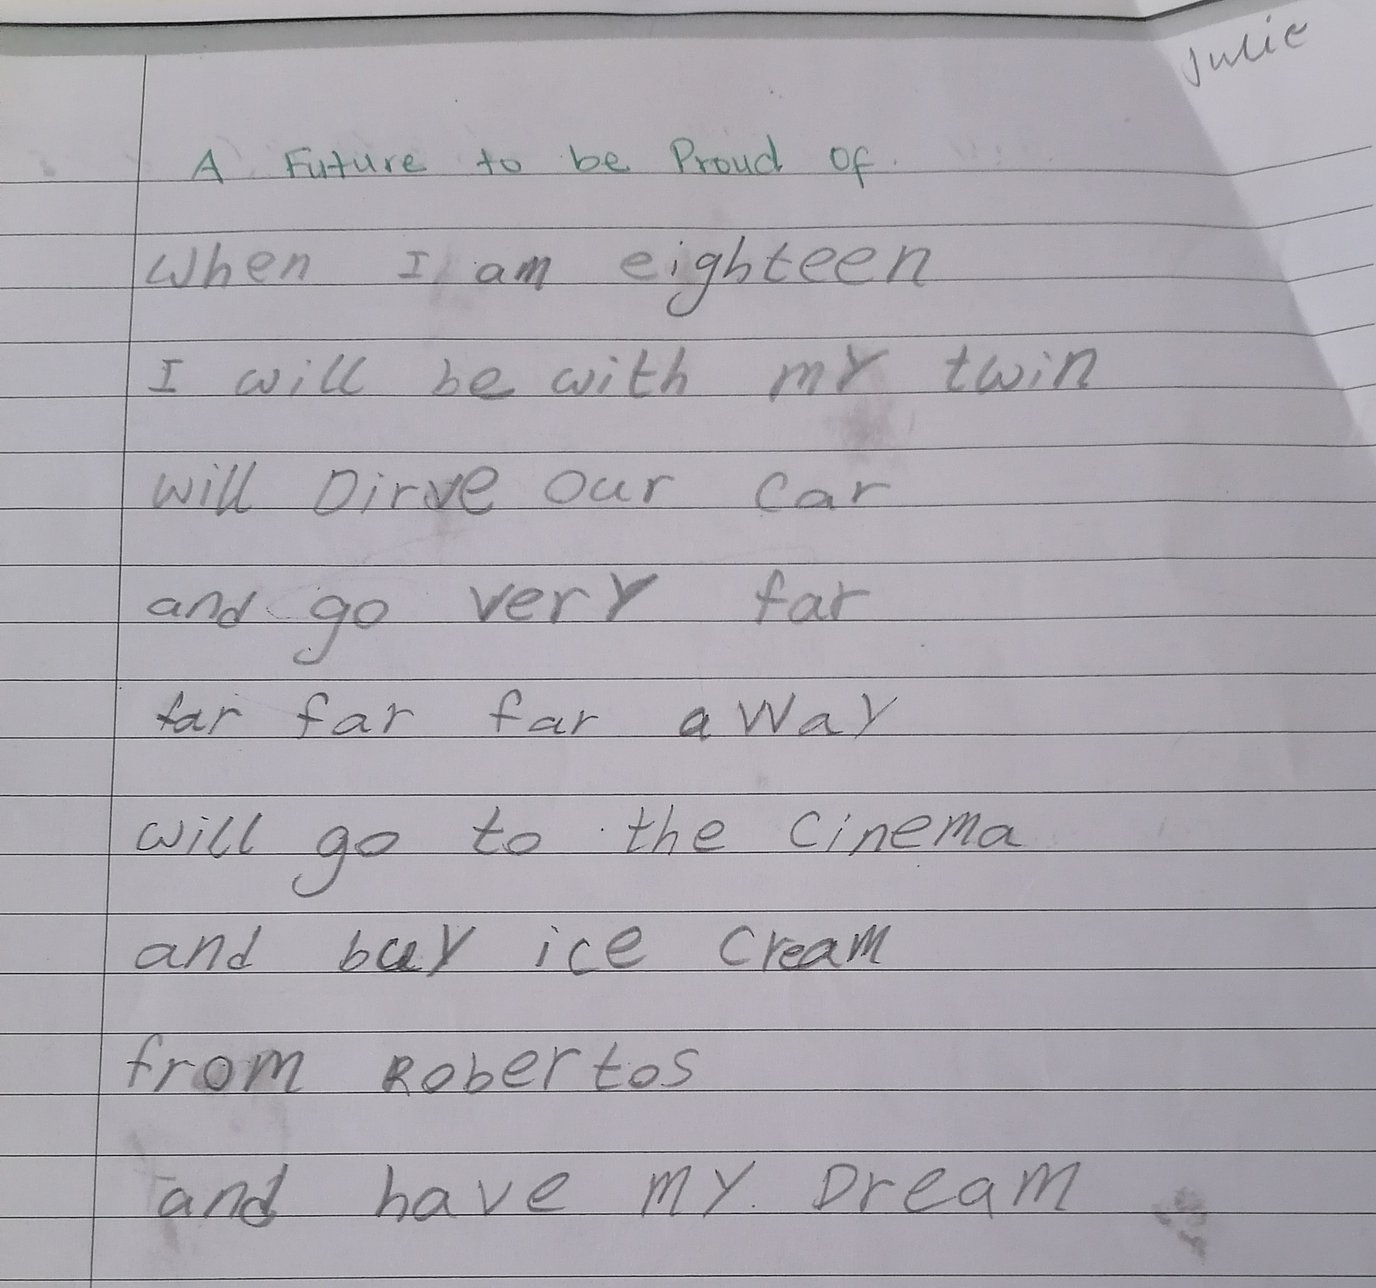 Julie
A Future to be Proud of.
When I am eighteen
I will be with my twin
will Dirve our car
and go very far
far far far a way
will go to the cinema
and buy ice cream
from Robertos
and have my Dream